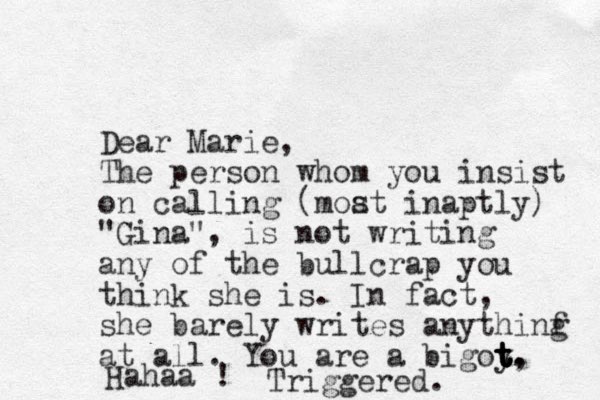 Dear Marie,
The person whom you insist
on calling (most inaptly)
"Gina", is not writing
any of the bullcrap you
think she is. In fact,
she barely writes anything
at all. You are a bigot,
Hahaa ! Triggered.